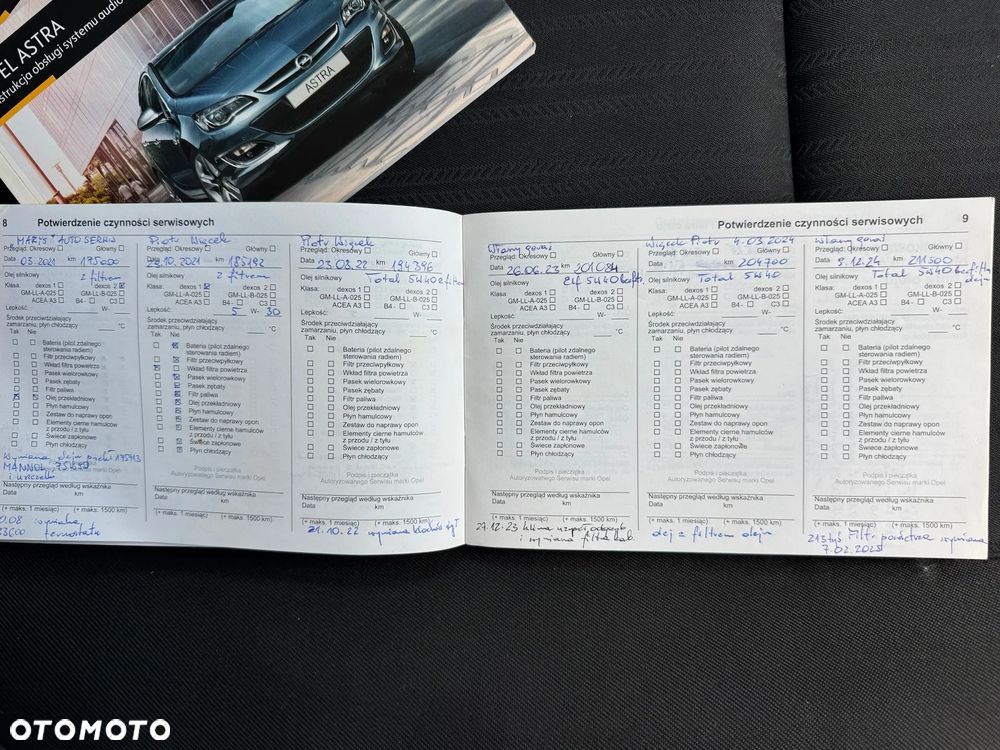 EL ASTRA
strukcja obsługi systemu audio
ASTRA
8 Potwierdzenie czynności serwisowych
MARYS AUTO SERWIS
Przegląd: Okresowy Główny
Data 03.2021 km 175000
Olej silnikowy z filtrem
Klasa: dexos 1 dexos 2
GM-LL-A-025 GM-LL-B-025
ACEA A3 B4 - C3
Lepkość: W-
Środek przeciwdziałający
zamarzaniu, płyn chłodzący °C
Tak Nie
Bateria (pilot zdalnego
sterowania radiem)
Filtr przeciwpyłkowy
Wkład filtra powietrza
Pasek wielorowkowy
Pasek zębaty
Filtr paliwa
Olej przekładniowy
Płyn hamulcowy
Zestaw do naprawy opon
Elementy cierne hamulców
z przodu / z tyłu
Świece zapłonowe
Płyn chłodzący
Wymiana oleju
MANNOL
i uszczelki
Następny przegląd według wskaźnika
Data km
(+ maks. 1 miesiąc) (+ maks. 1500 km)
wymiana
termostatu
Piotr Więcek
Przegląd: Okresowy Główny
Data 10.2021 km 185192
Olej silnikowy z filtrem
Klasa: dexos 1 dexos 2
GM-LL-A-025 GM-LL-B-025
ACEA A3 B4 - C3
Lepkość: 5 W- 30
Środek przeciwdziałający
zamarzaniu, płyn chłodzący °C
Tak Nie
Bateria (pilot zdalnego
sterowania radiem)
Filtr przeciwpyłkowy
Wkład filtra powietrza
Pasek wielorowkowy
Pasek zębaty
Filtr paliwa
Olej przekładniowy
Płyn hamulcowy
Zestaw do naprawy opon
Elementy cierne hamulców
z przodu / z tyłu
Świece zapłonowe
Płyn chłodzący
Podpis i pieczątka
Autoryzowanego Serwisu marki Opel
Następny przegląd według wskaźnika
Data km
(+ maks. 1 miesiąc) (+ maks. 1500 km)
Piotr Więcek
Przegląd: Okresowy Główny
Data 23.08.22 km 194396
Olej silnikowy Total 5W40 z filtrem
Klasa: dexos 1 dexos 2
GM-LL-A-025 GM-LL-B-025
ACEA A3 B4 - C3
Lepkość: W-
Środek przeciwdziałający
zamarzaniu, płyn chłodzący °C
Tak Nie
Bateria (pilot zdalnego
sterowania radiem)
Filtr przeciwpyłkowy
Wkład filtra powietrza
Pasek wielorowkowy
Pasek zębaty
Filtr paliwa
Olej przekładniowy
Płyn hamulcowy
Zestaw do naprawy opon
Elementy cierne hamulców
z przodu / z tyłu
Świece zapłonowe
Płyn chłodzący
Podpis i pieczątka
Autoryzowanego Serwisu marki Opel
Następny przegląd według wskaźnika
Data km
(+ maks. 1 miesiąc) (+ maks. 1500 km)
21.10.22 wymiana klocków
Potwierdzenie czynności serwisowych 9
Własny garaż
Przegląd: Okresowy Główny
Data 26.06.23 km 201084
Olej silnikowy Elf 5W40
Klasa: dexos 1 dexos 2
GM-LL-A-025 GM-LL-B-025
ACEA A3 B4 - C3
Lepkość: W-
Środek przeciwdziałający
zamarzaniu, płyn chłodzący °C
Tak Nie
Bateria (pilot zdalnego
sterowania radiem)
Filtr przeciwpyłkowy
Wkład filtra powietrza
Pasek wielorowkowy
Pasek zębaty
Filtr paliwa
Olej przekładniowy
Płyn hamulcowy
Zestaw do naprawy opon
Elementy cierne hamulców
z przodu / z tyłu
Świece zapłonowe
Płyn chłodzący
Podpis i pieczątka
Autoryzowanego Serwisu marki Opel
Następny przegląd według wskaźnika
Data km
(+ maks. 1 miesiąc) (+ maks. 1500 km)
27.12.23 klima
i wymiana filtra kab.
Więcek Piotr 4.03.2024
Przegląd: Okresowy Główny
Data km 204700
Olej silnikowy Total 5W40
Klasa: dexos 1 dexos 2
GM-LL-A-025 GM-LL-B-025
ACEA A3 B4 - C3
Lepkość: W-
Środek przeciwdziałający
zamarzaniu, płyn chłodzący °C
Tak Nie
Bateria (pilot zdalnego
sterowania radiem)
Filtr przeciwpyłkowy
Wkład filtra powietrza
Pasek wielorowkowy
Pasek zębaty
Filtr paliwa
Olej przekładniowy
Płyn hamulcowy
Zestaw do naprawy opon
Elementy cierne hamulców
z przodu / z tyłu
Świece zapłonowe
Płyn chłodzący
Podpis i pieczątka
Autoryzowanego Serwisu marki Opel
Następny przegląd według wskaźnika
Data km
(+ maks. 1 miesiąc) (+ maks. 1500 km)
olej z filtrem oleju
Własny garaż
Przegląd: Okresowy Główny
Data 9.12.24 km 211500
Olej silnikowy Total 5W40
oleju
Klasa: dexos 1 dexos 2
GM-LL-A-025 GM-LL-B-025
ACEA A3 B4 - C3
Lepkość: W-
Środek przeciwdziałający
zamarzaniu, płyn chłodzący °C
Tak Nie
Bateria (pilot zdalnego
sterowania radiem)
Filtr przeciwpyłkowy
Wkład filtra powietrza
Pasek wielorowkowy
Pasek zębaty
Filtr paliwa
Olej przekładniowy
Płyn hamulcowy
Zestaw do naprawy opon
Elementy cierne hamulców
z przodu / z tyłu
Świece zapłonowe
Płyn chłodzący
Podpis i pieczątka
Autoryzowanego Serwisu marki Opel
Następny przegląd według wskaźnika
Data km
(+ maks. 1 miesiąc) (+ maks. 1500 km)
213tyś Filtr powietrza wymiana
7.02.2025
OTOMOTO